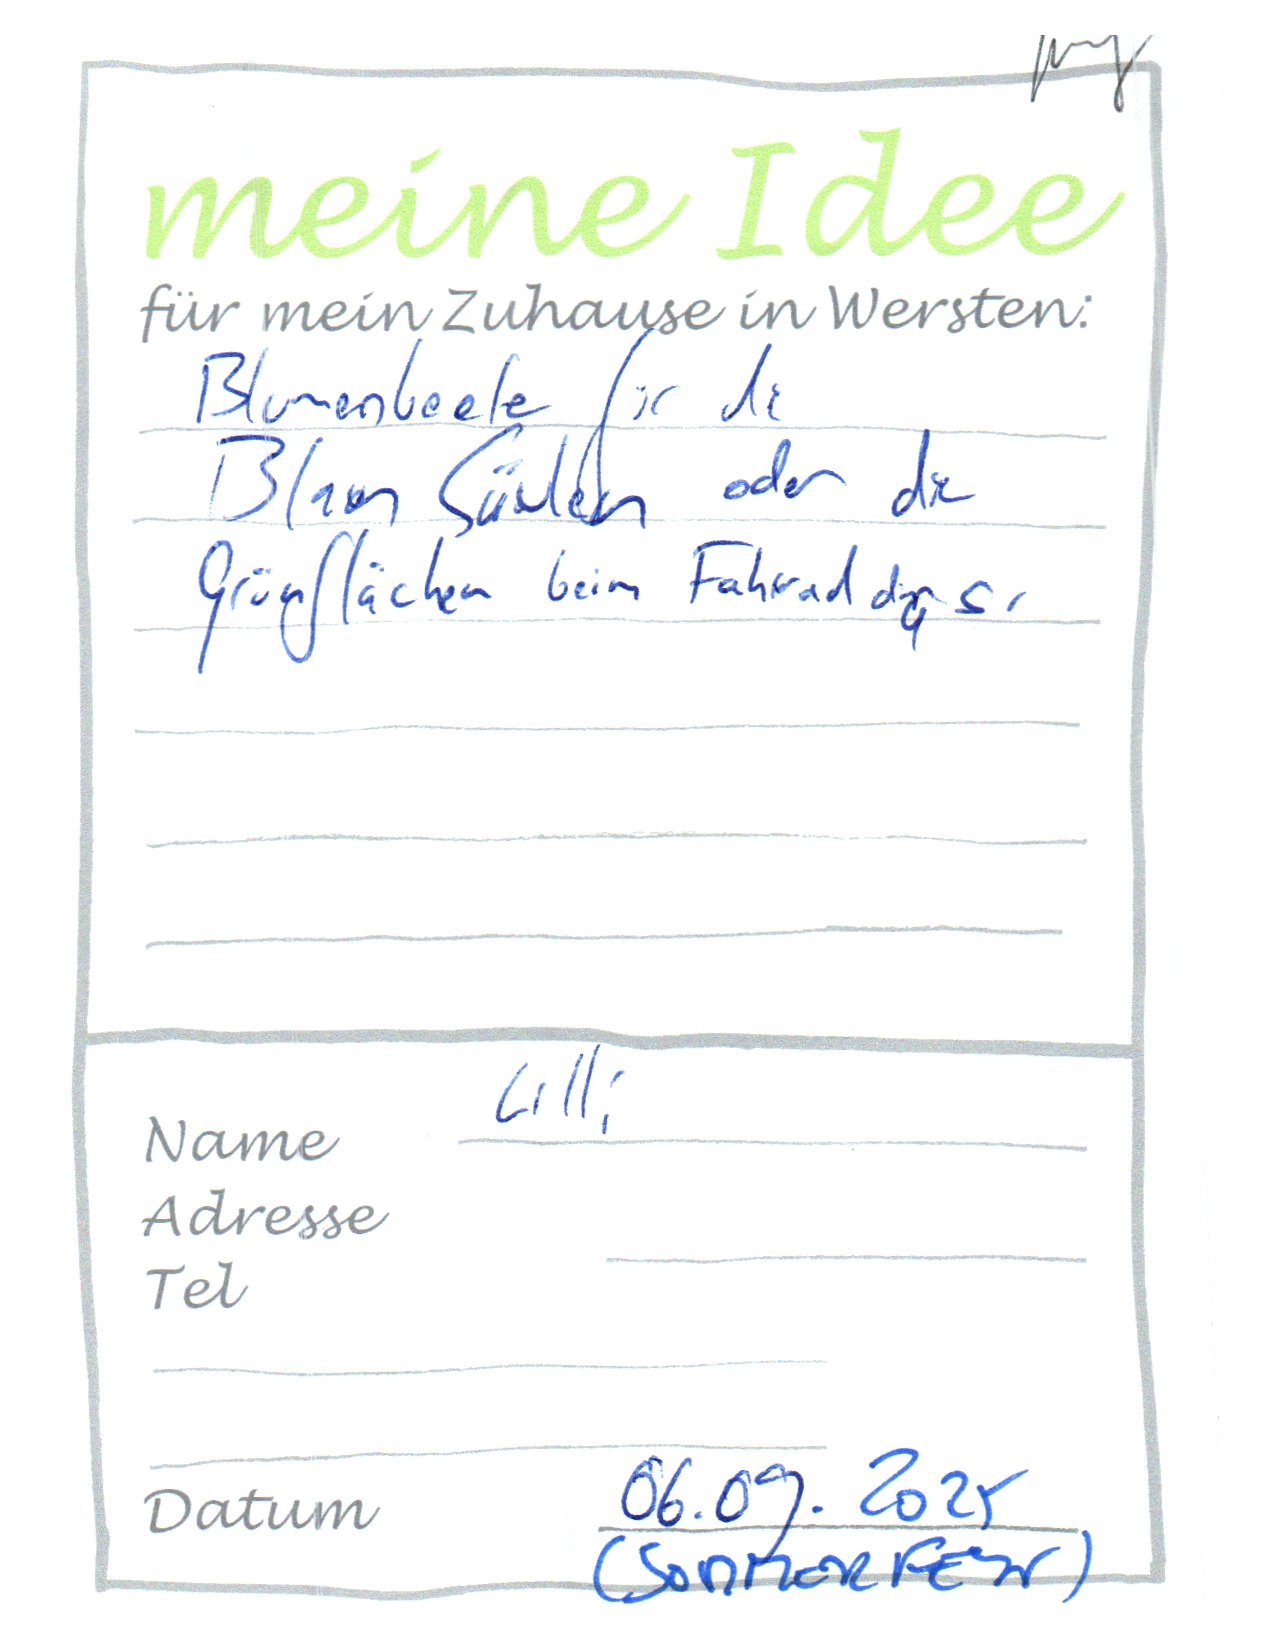 meine Idee
für mein Zuhause in Wersten:
Blumenbeete für die
Blauen Säulen oder die
Grünflächen beim Fahrraddings.
Name Lilli
Adresse
Tel
Datum 06.09.2025
(SOMMERFEST)